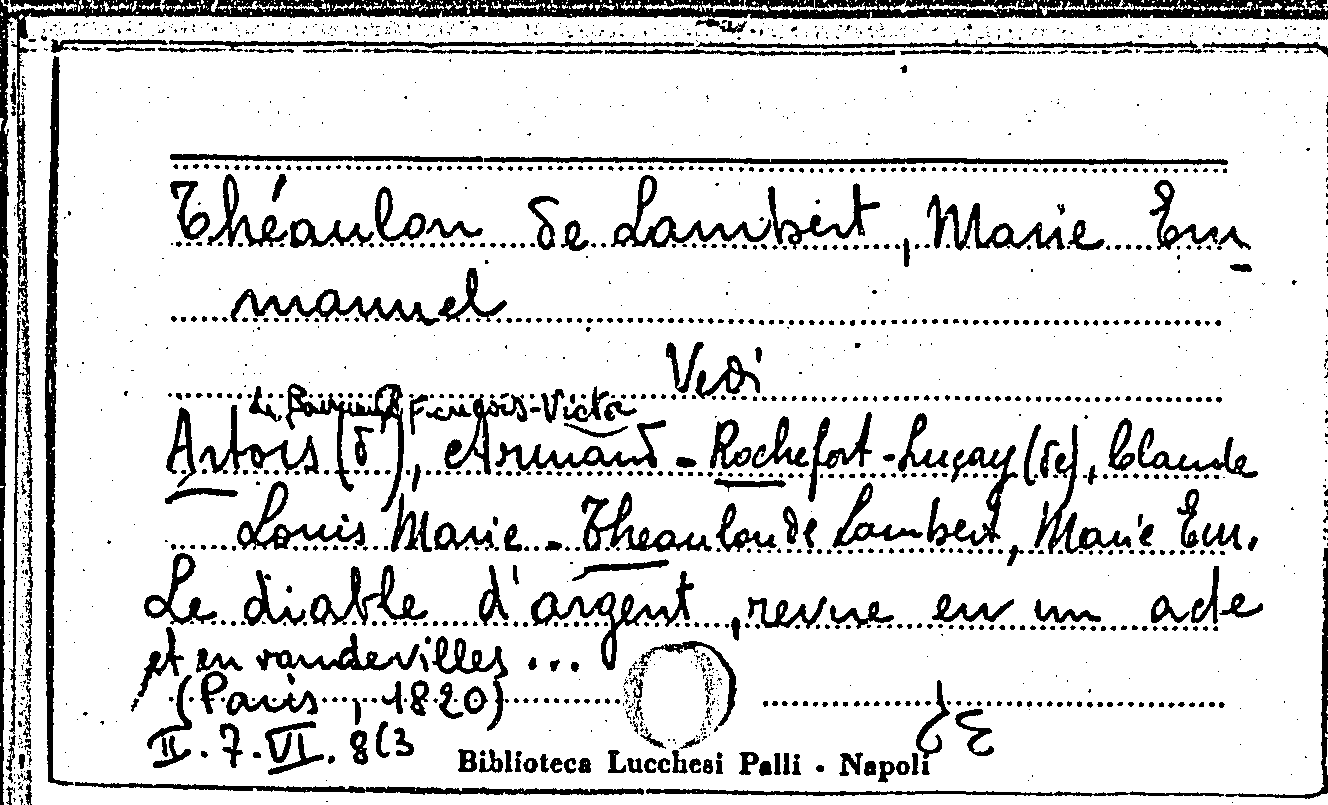 Théaulon de Lambert, Marie Em
manuel
Vedi
François-Victor
Artois (d'), Armand - Rochefort-Luçay (de), Claude
Louis Marie - Theaulon de Lambert, Marie Em.
Le diable d'argent, revue en un acte
et en vaudevilles...
(Paris, 1820)
II. 7. VI. 8(3
Biblioteca Lucchesi Palli - Napoli